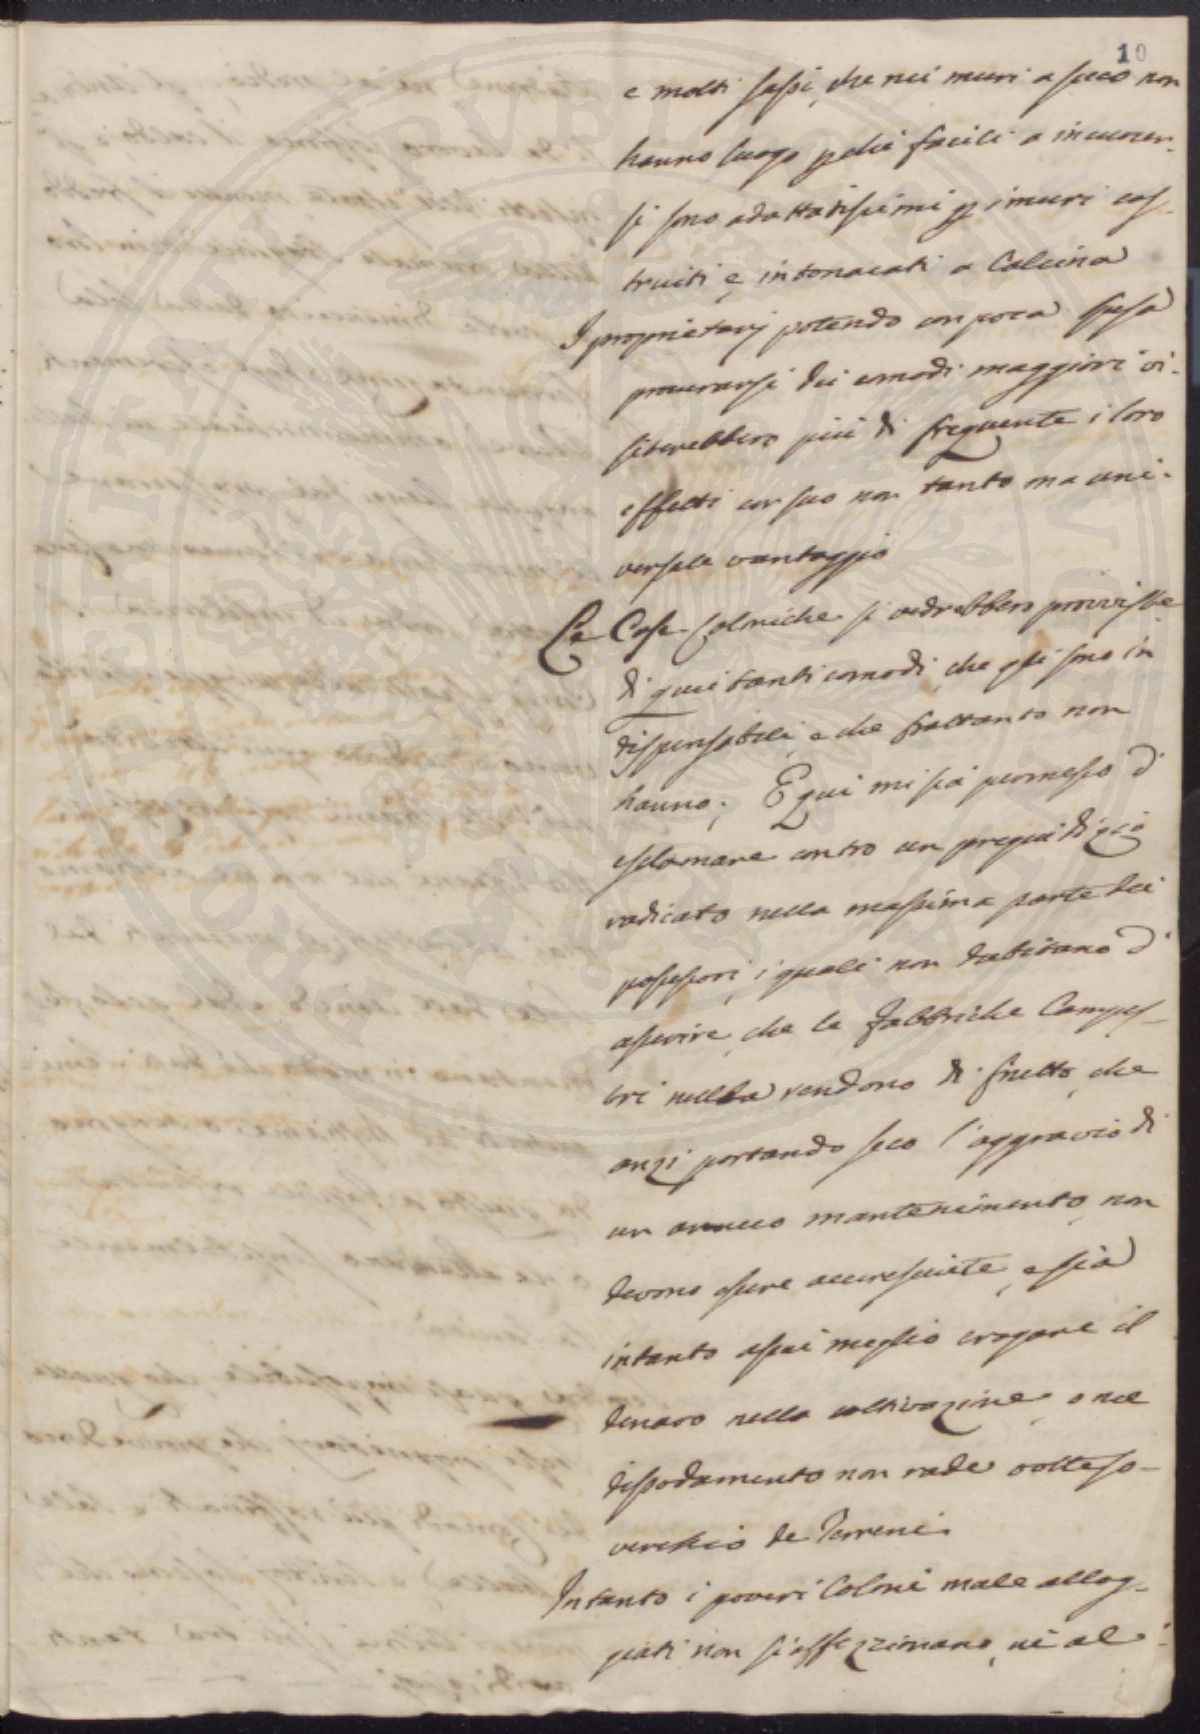 10
e molti sassi, che nei muri a secco non
hanno luogo pchè facili a incuocer-
si sono adattatissimi p i muri cos-
truiti, e intonacati a Calcina
I proprietarj potendo con poca spesa
procurarsi dei comodi maggiori vi-
siterebbero più di frequente i loro
effetti con suo non tanto ma uni-
versale vantaggio
Le Case Coloniche si vedrebbero provviste
di quei tanti comodi, che gli sono in
dispensabili, e che frattanto non
hanno. E qui mi sia permesso d'
esclamare contro un pregiudizio
radicato nella massima parte dei
possessori, i quali non dubitano d'
asserire, che le Fabbriche Campes-
tri nulla rendono di frutto, che
anzi portando seco l'aggravio di
un annuo mantenimento, non
devono essere accresciute, e sia
intanto assai meglio erogare il
denaro nella coltivazione, o nel
dissodamento non rade volte so-
verchio de Terreni.
Intanto i poveri Coloni male allog-
giati non si affezzionano, nè al